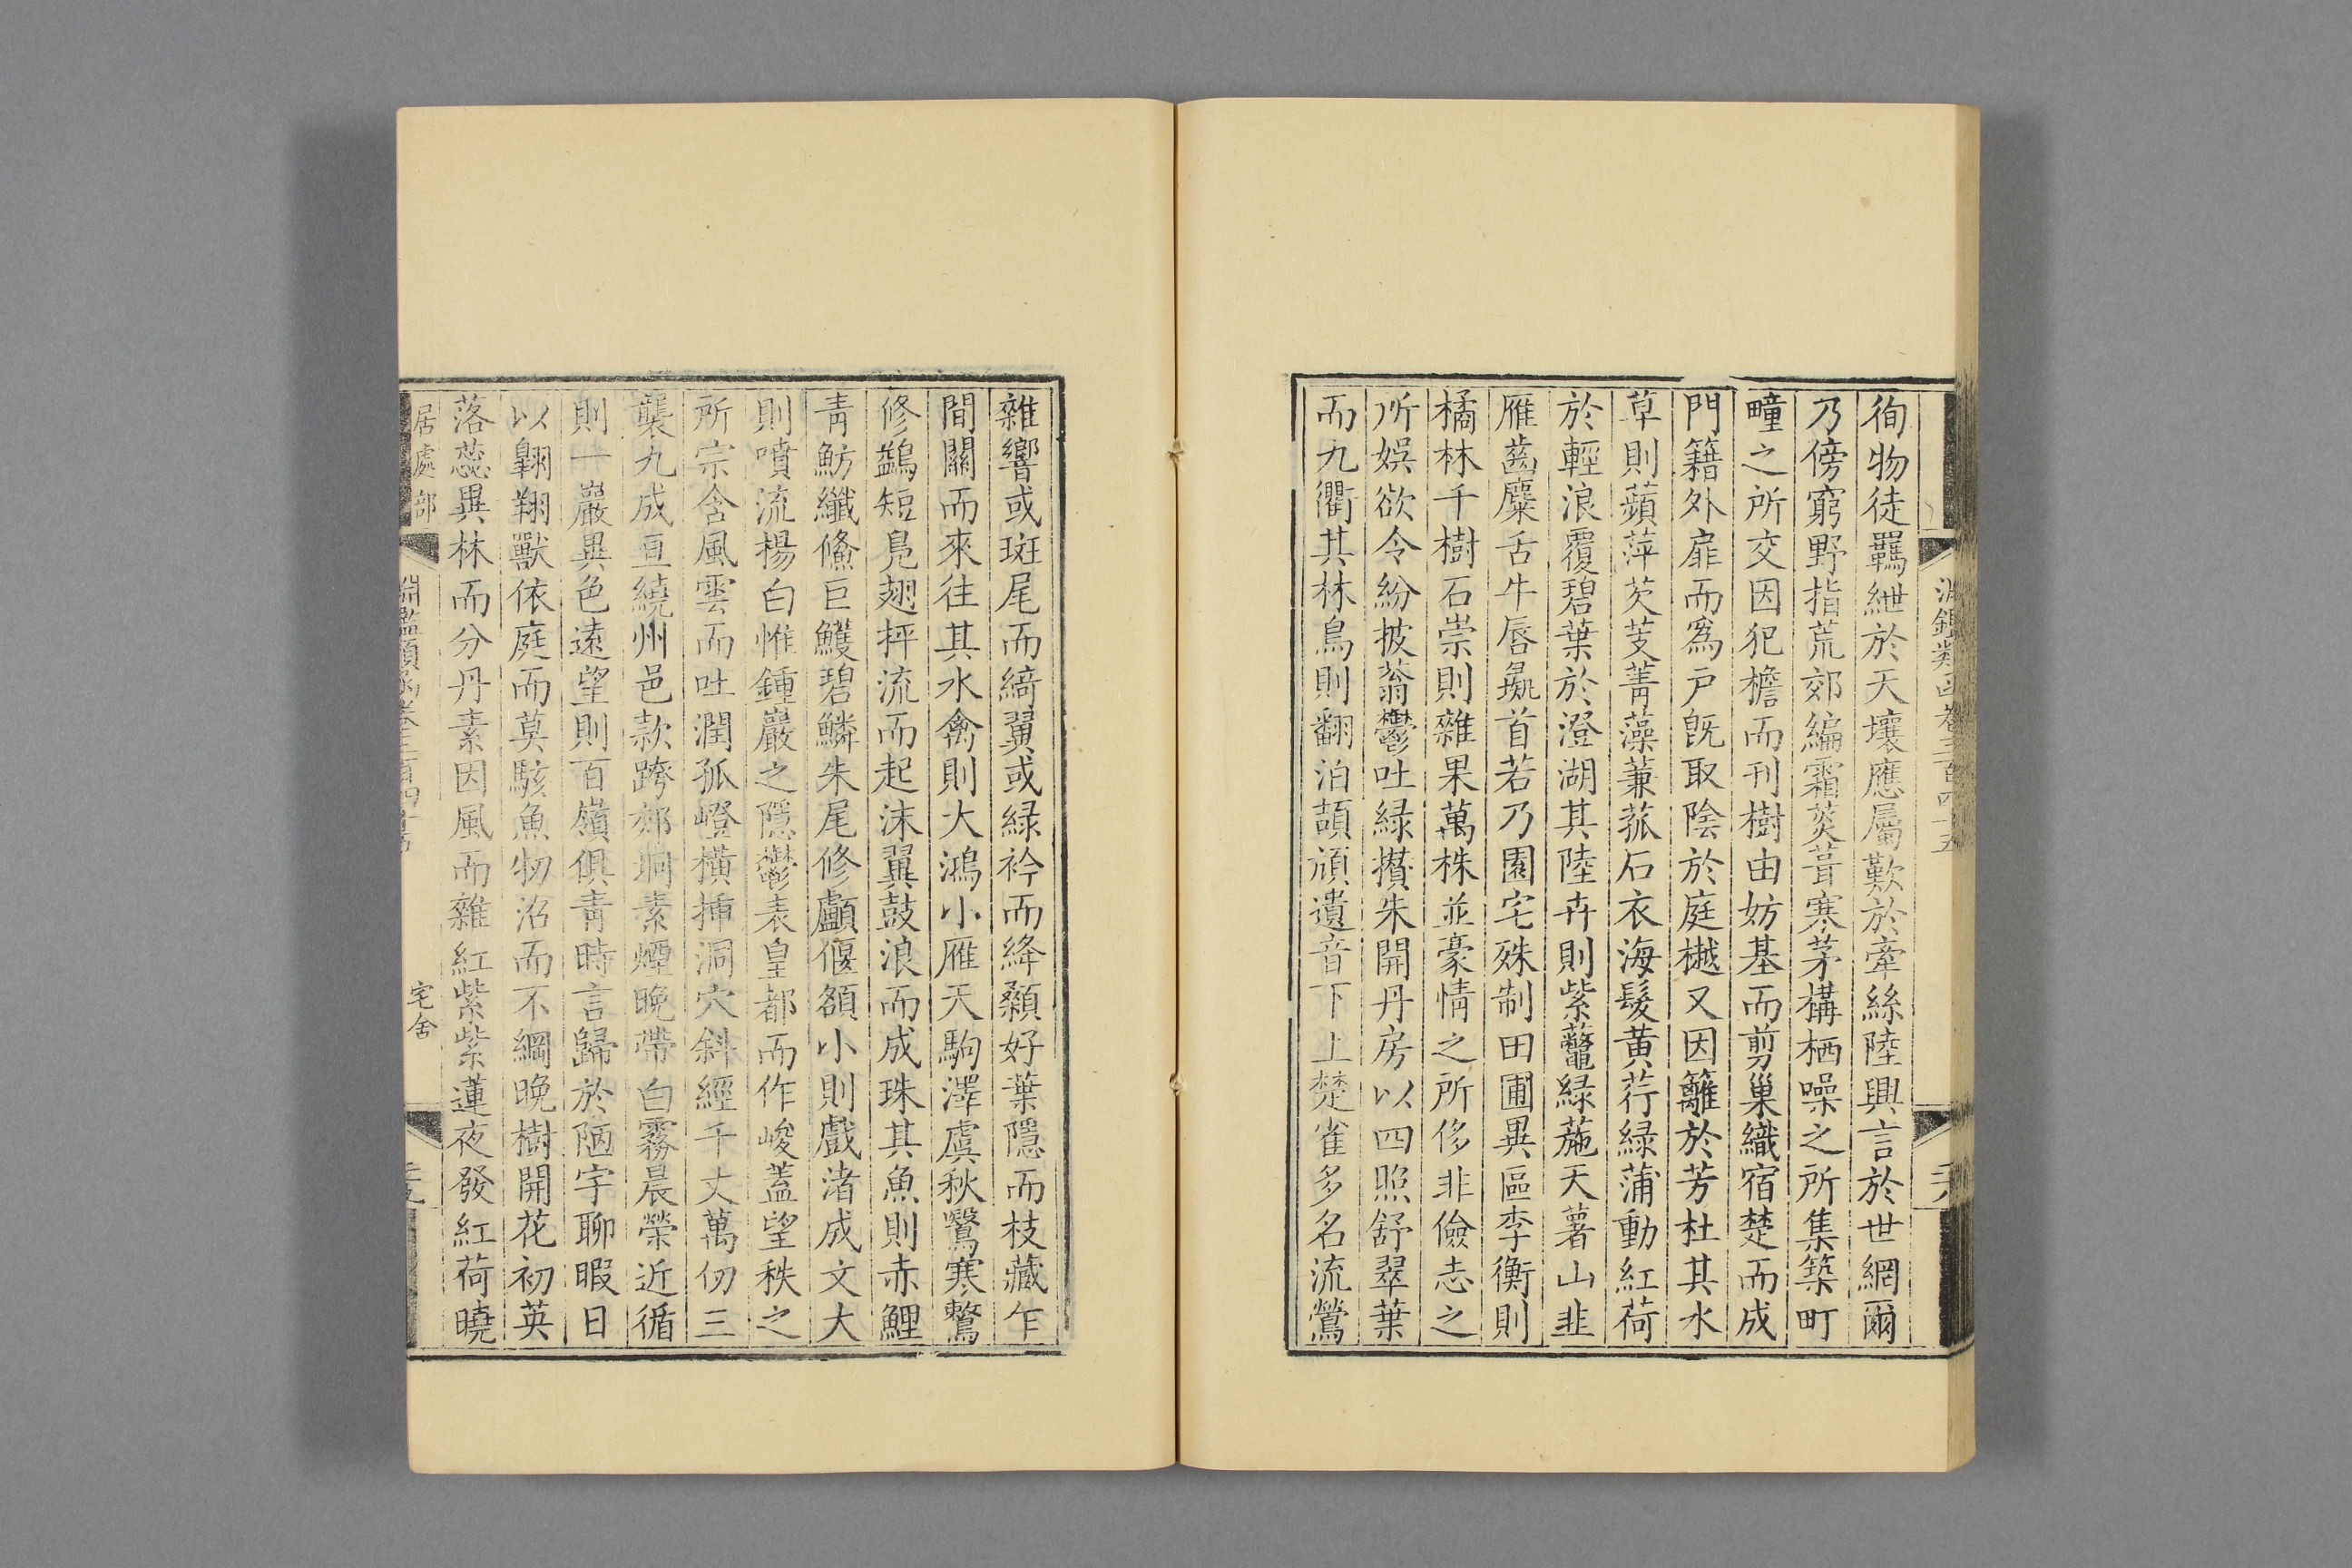 徇物徒羈紲於天壤應屬歎於牽絲陸興言於世網爾
乃傍窮野指荒郊編霜菼葺寒茅構栖噪之所集築町
疃之所交因犯檐而刊樹由妨基而剪巢織宿楚而成
門籍外扉而爲戸旣取陰於庭樾又因籬於芳杜其水
草則蘋萍芡芰菁藻蒹菰石衣海髮黄荇緑蒲動紅荷
於輕浪覆碧葉於澄湖其陸卉則紫虌緑葹天著山韭
雁齒麋舌牛唇彘首若乃園宅殊制田圃異區李衡則
橘林千樹石崇則雜果萬株並豪情之所侈非儉志之
所娛欲令紛披蓊鬱吐緑攢朱開丹房以四照舒翠葉
而九衢其林鳥則翻泊頡頏遺音下上楚雀多名流鶯
雜響或斑尾而綺翼或緑衿而絳顙好葉隱而枝藏乍
間關而來往其水禽則大鴻小雁天駒澤虞秋鷖寒鷘
修鷁短鳧翅抨流而起沫翼鼓浪而成珠其魚則赤鯉
青魴纖鯈巨鱯碧鱗朱尾修顱偃額小則戲渚成文大
則噴流楊白惟鍾巖之隱鬱表皇都而作峻蓋望秩之
所宗含風雲而吐潤孤嶝橫揷洞穴斜經千丈萬仞三
襲九成亘繞州邑款跨郊坰素煙晚帶白霧晨縈近循
則一巖異色遠望則百嶺俱青時言歸於陋宇聊暇日
以翺翔獸依庭而莫駭魚牣沼而不綱晚樹開花初英
落蕊異林而分丹素因風而雜紅紫紫蓮夜發紅荷曉
居處部
宅舍